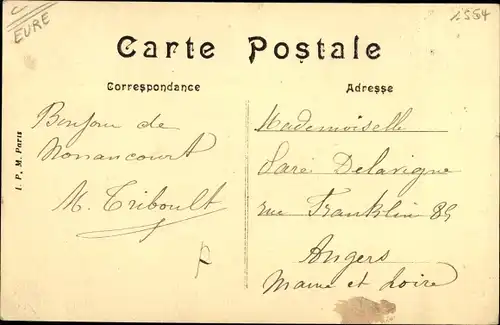 EURE
1554
Carte Postale
Correspondance
Adresse
Bonjour de
Nonancourt
M. Triboult
I. P. M. Paris
Mademoiselle
Delavigne
rue Franklin 85
Angers
Maine et Loire